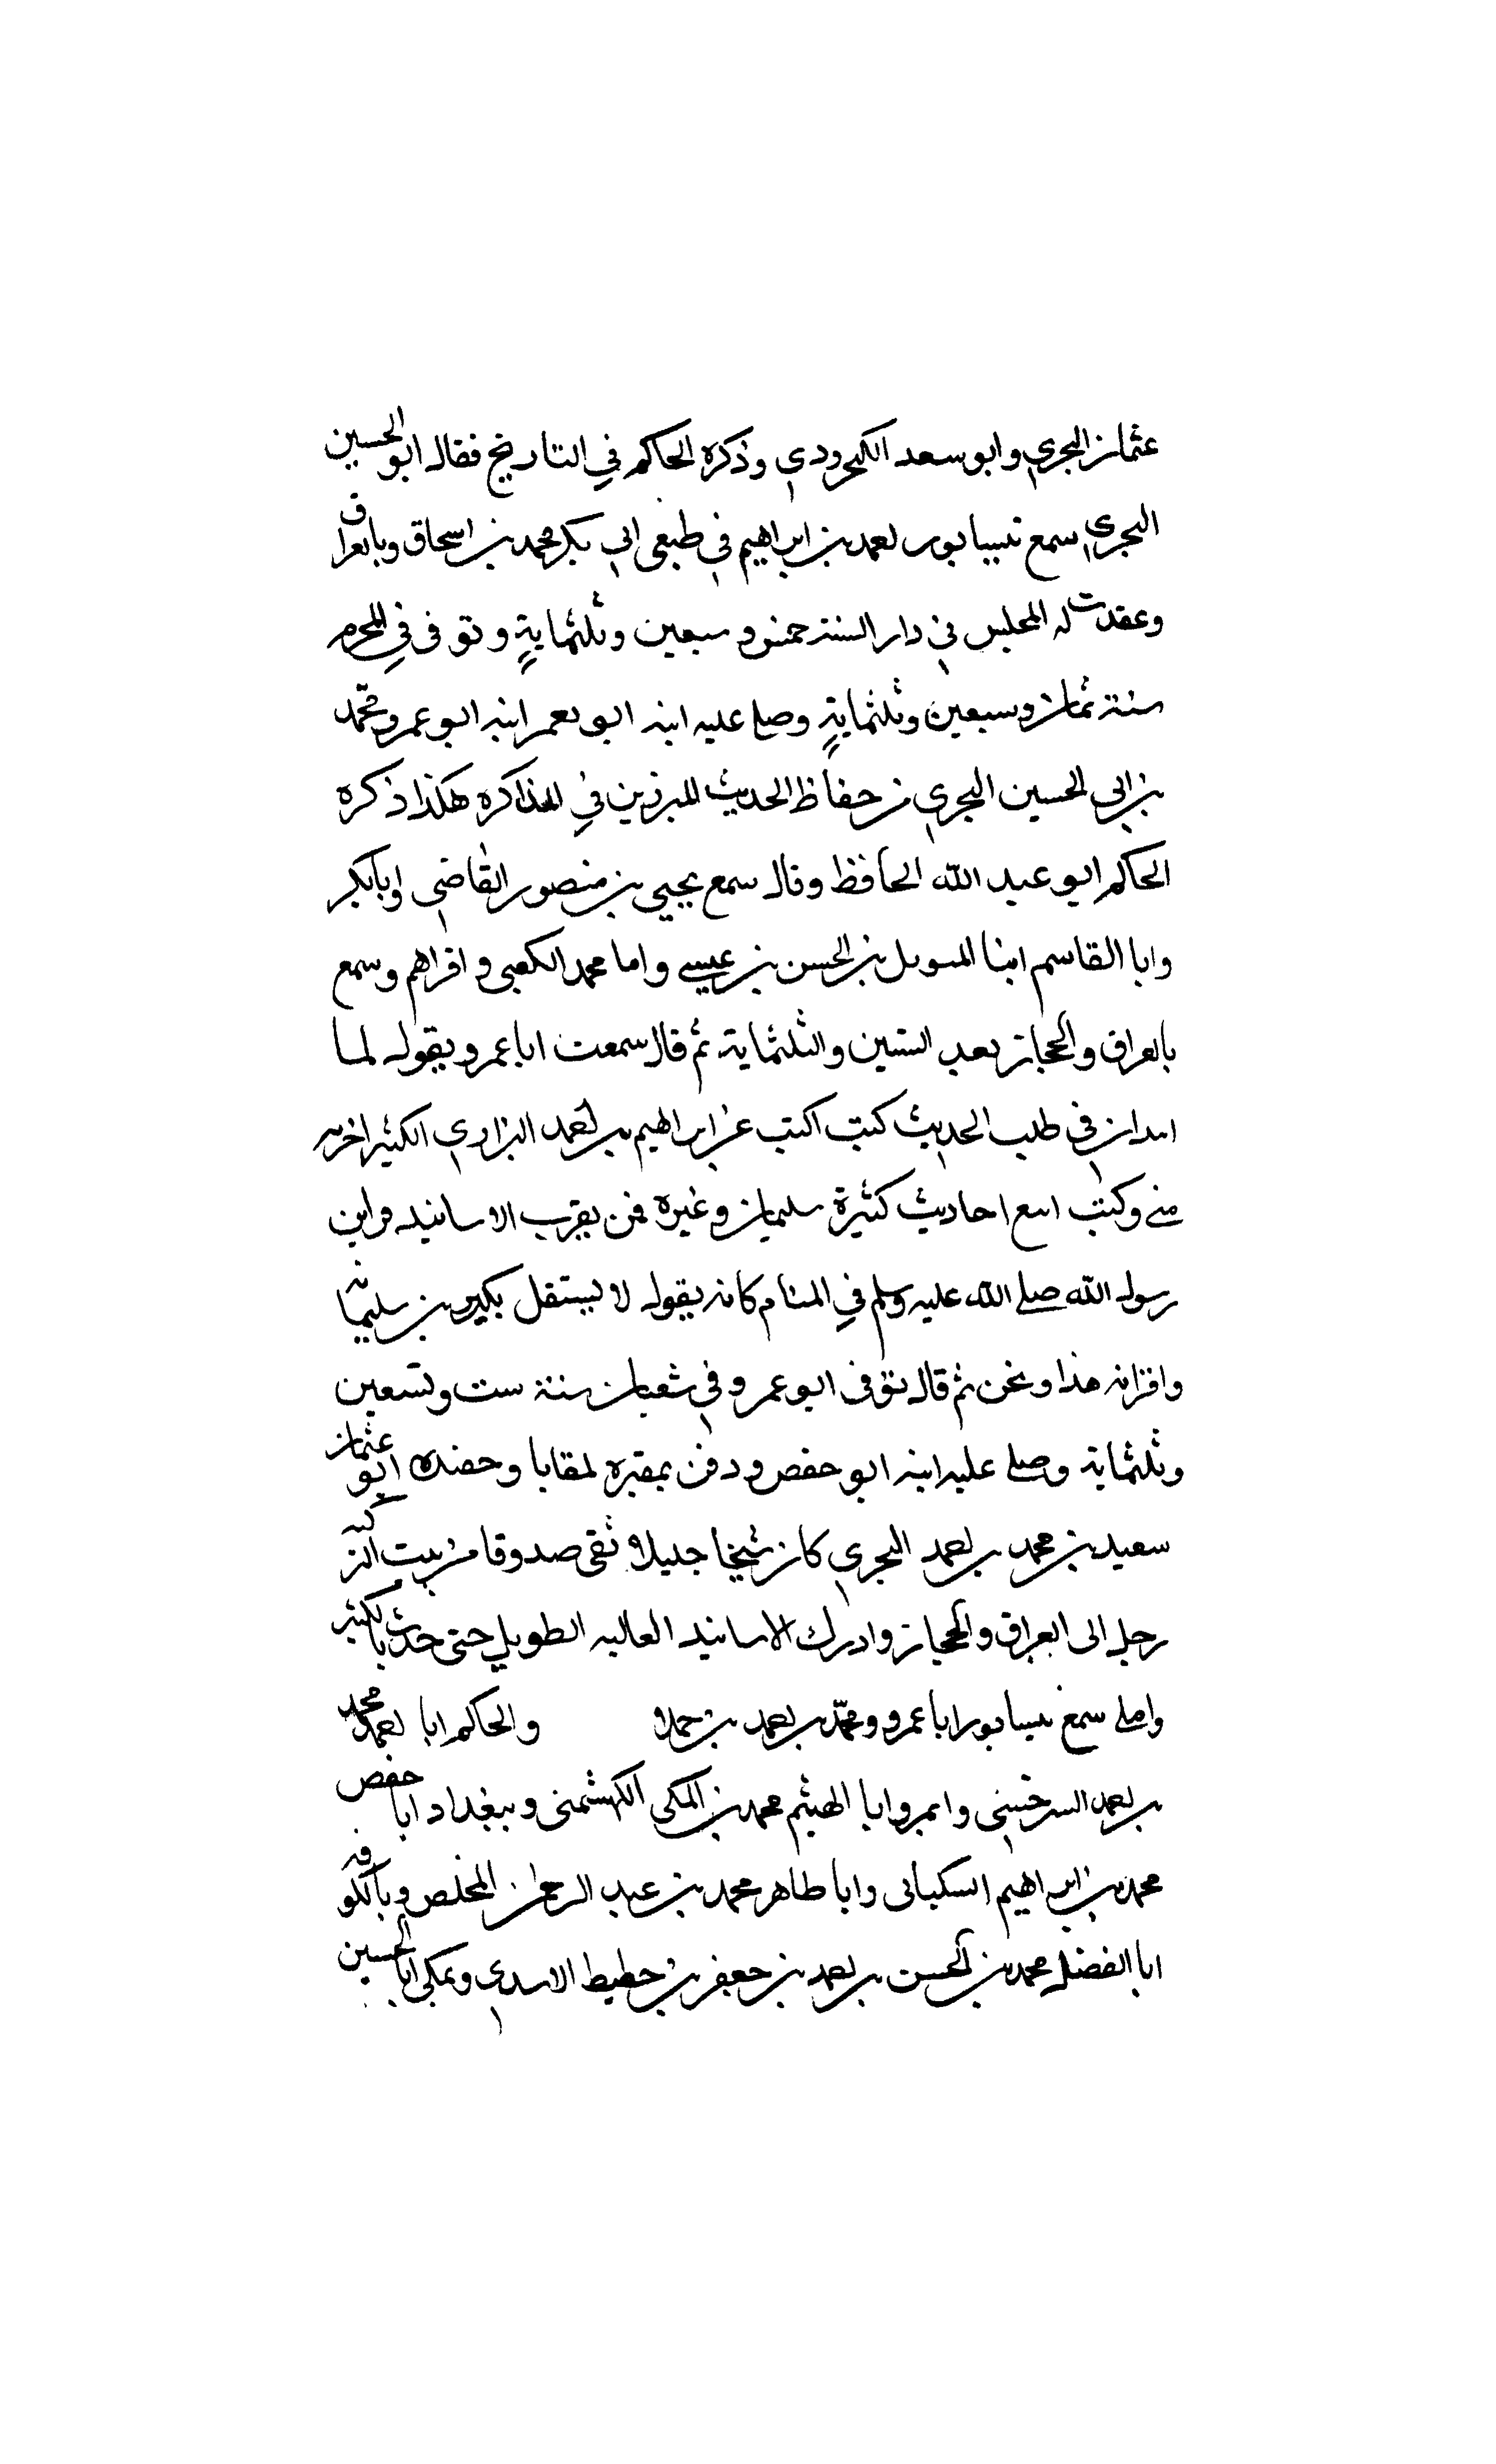 عثمان البحري وابو سعد الكنجرودي وذكره الحاكم في التاريخ فقال ابو الحسين
البحري سمع نيسابور احمد بن ابراهيم في طبعى ابي بكر محمد بن اسحاق وبالعراق
وعقدت له المجلس في دار السنة خمس وسبعين وثلثماية وتوفى في المحرم
سنة ثمان وسبعين وثلثماية وصلى عليه ابنه ابو عمر ابنه ابو عمرو محمد
بن ابي الحسين البحري من حفاظ الحديث المبرزين في المذاكره هكذا ذكره
الحاكم ابو عبد الله الحافظ وقال سمع يحيى بن منصور القاضي وابا بكر
وابا القاسم ابنا بن الحسن بن عيسى وابا محمد الكعبي واقرانهم وسمع
بالعراق والحجاز بعد الستين والثلثماية ثم قال سمعت ابا عمرو يقول لما
في طلب الحديث كنت اكتب عن ابراهيم بن احمد البزاري الكثير
منه وكنت احاديث كثيرة سليمان وغيره فمن يقرب الاسانيد فراين
رسول الله صلى الله عليه وسلم في المنام كانه يقول لا يستقل بكير بن سليمان
واقرانه هذا ونحن ثم قال توفى ابو عمرو في شعبان سنة ست وتسعين
وثلثماية وصلى عليه ابنه ابو حفص ودفن بمقبره لمقابا وحفده ابو عثمان
سعيد بن محمد بن احمد البحري كان شيخا جليلا ثقى صدوقا من بيت التزكيه
رحل الى العراق والحجاز وادرك الاسانيد العاليه الطويل حتى حدث بالكثير
واملى سمع نيسابور ابا عمرو ومحمد بن احمد بن حمد والحاكم ابا احمد محمد
بن احمد السرخسي وابا الهيثم محمد بن المكي الكهشمنى وببغداد ابا حفص
محمد بن ابراهيم السكباني وابا طاهر محمد بن عبد الرحمان المخلص وبالكوفه
ابا الفضل محمد بن الحسن بن احمد بن جعفر بن حطيط الاسدي وبمكة ابا الحسين